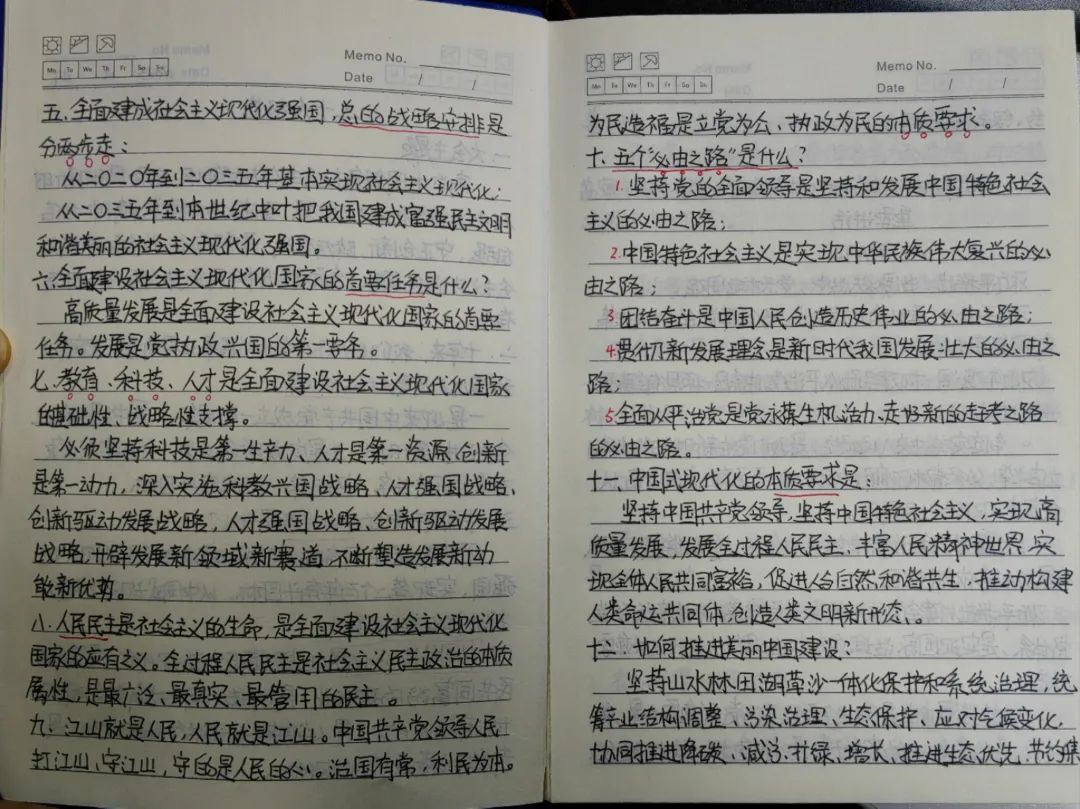 Memo No.
Mo Tu We Th Fr Sa Su
Date / /
五、全面建成社会主义现代化强国，总的战略安排是
分两步走：
从二〇二〇年到二〇三五年基本实现社会主义现代化；
从二〇三五年到本世纪中叶把我国建成富强民主文明
和谐美丽的社会主义现代化强国。
六、全面建设社会主义现代化国家的首要任务是什么？
高质量发展是全面建设社会主义现代化国家的首要
任务。发展是党执政兴国的第一要务。
七、教育、科技、人才是全面建设社会主义现代化国家
的基础性、战略性支撑。
必须坚持科技是第一生产力、人才是第一资源、创新
是第一动力，深入实施科教兴国战略、人才强国战略、
创新驱动发展战略，人才强国战略、创新驱动发展
战略，开辟发展新领域新赛道，不断塑造发展新动
能新优势。
八、人民民主是社会主义的生命，是全面建设社会主义现代化
国家的应有之义。全过程人民民主是社会主义民主政治的本质
属性，是最广泛、最真实、最管用的民主。
九、江山就是人民，人民就是江山。中国共产党领导人民
打江山、守江山，守的是人民的心。治国有常，利民为本。
Memo No.
Mo Tu We Th Fr Sa Su
Date / /
为民造福是立党为公、执政为民的本质要求。
十、五个“必由之路”是什么？
1.坚持党的全面领导是坚持和发展中国特色社会
主义的必由之路；
2.中国特色社会主义是实现中华民族伟大复兴的必
由之路；
3团结奋斗是中国人民创造历史伟业的必由之路；
4.贯彻新发展理念是新时代我国发展壮大的必由之
路；
5全面从严治党是党永葆生机活力、走好新的赶考之路
的必由之路。
十一、中国式现代化的本质要求是：
坚持中国共产党领导，坚持中国特色社会主义，实现高
质量发展，发展全过程人民民主，丰富人民精神世界，实
现全体人民共同富裕，促进人与自然和谐共生，推动构建
人类命运共同体，创造人类文明新形态。
十二、如何推进美丽中国建设？
坚持山水林田湖草沙一体化保护和系统治理，统
筹产业结构调整、污染治理、生态保护、应对气候变化，
协同推进降碳、减污、扩绿、增长，推进生态优先、节约集